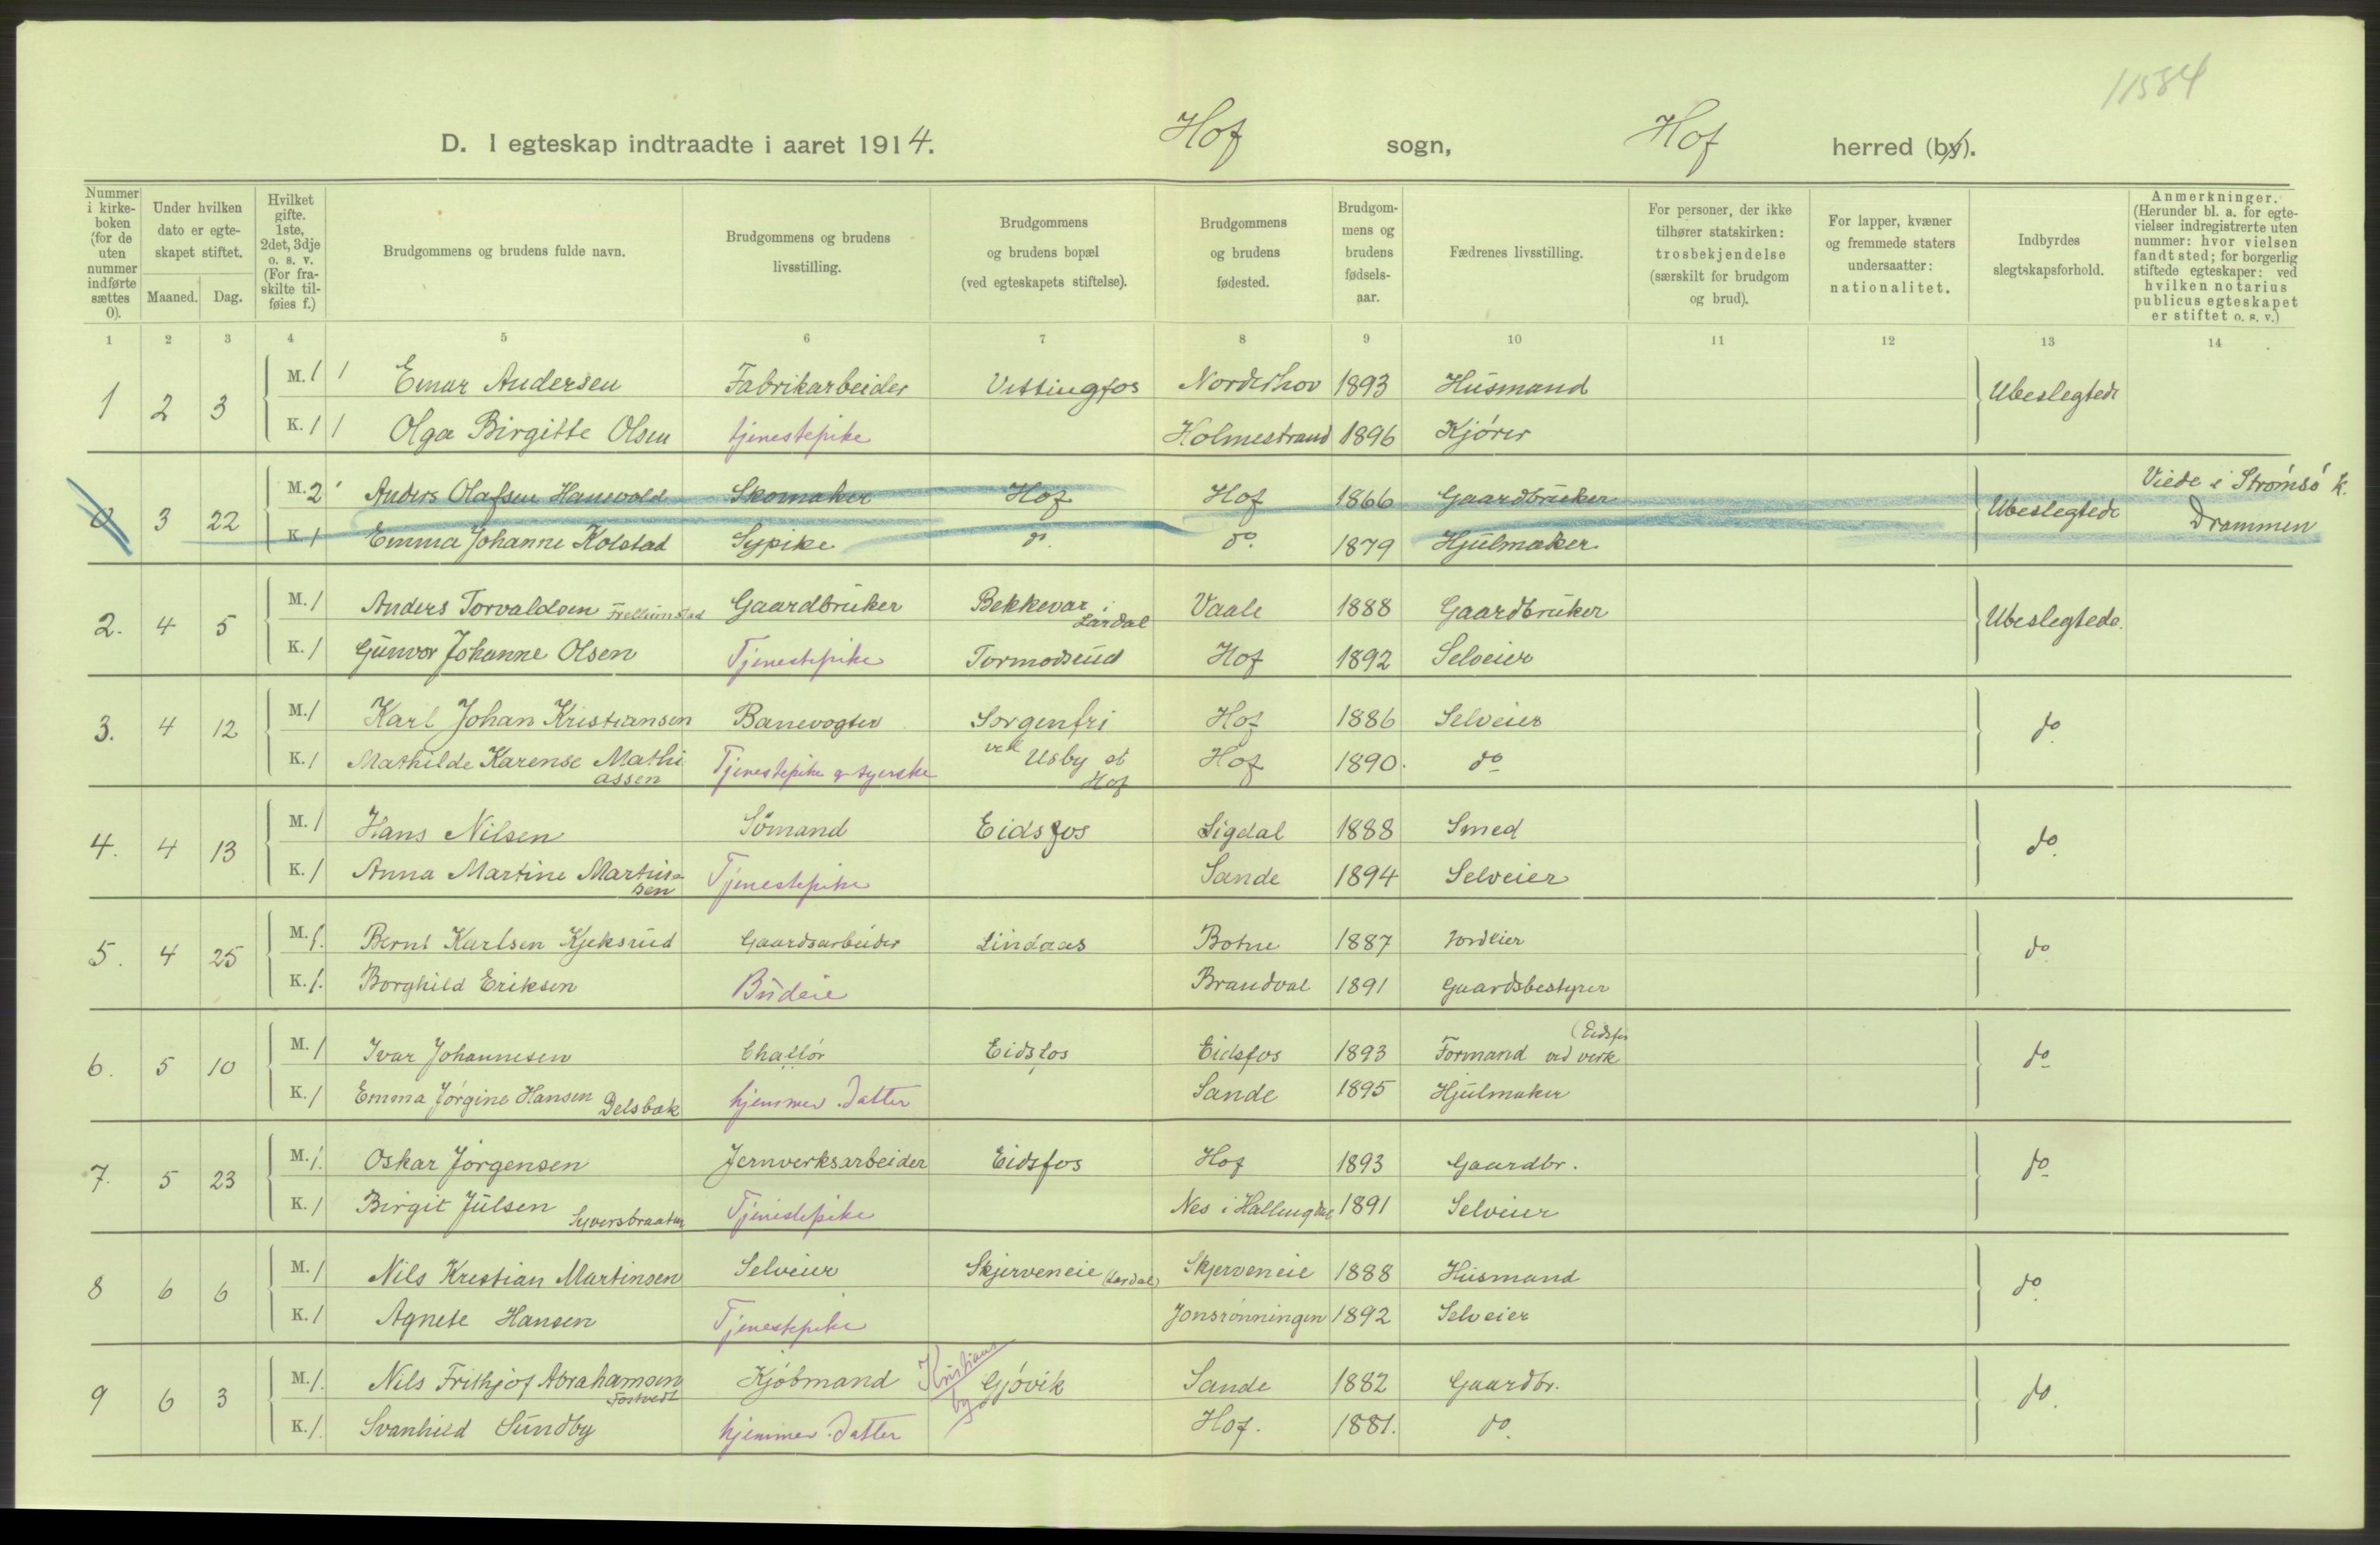 11584
D. I egteskap indtraadte i aaret 1914. Hof sogn, Hof herred (by).
Nummer i kirkeboken (for de uten nummer indførte sættes 0).
Under hvilken dato er egteskapet stiftet.
Maaned. Dag.
Hvilket gifte. 1ste, 2det, 3dje o. s. v. (For fraskilte tilføies f.)
Brudgommens og brudens fulde navn.
Brudgommens og brudens livsstilling.
Brudgommens og brudens bopæl (ved egteskapets stiftelse).
Brudgommens og brudens fødested.
Brudgommens og brudens fødselsaar.
Fædrenes livsstilling.
For personer, der ikke tilhører statskirken: trosbekjendelse (særskilt for brudgom og brud).
For lapper, kvæner og fremmede staters undersaatter: nationalitet.
Indbyrdes slegtskapsforhold.
Anmerkninger. (Herunder bl. a. for egtevielser indregistrerte uten nummer: hvor vielsen fandt sted; for borgerlig stiftede egteskaper: ved hvilken notarius publicus egteskapet er stiftet o. s. v.)
1 2 3 4 5 6 7 8 9 10 11 12 13 14
1 2 3 M. 1 1 Einar Andersen Fabrikarbeider Vittingfos Norderhov 1893 Husmand Ubeslegtede
K. 1 1 Olga Birgitte Olsen tjenestepike Holmestrand 1896 Kjører
0 3 22 M. 2 Anders Olafsen Hanevold Skomaker Hof Hof 1866 Gaardbruker Ubeslegtede Viede i Strømsø k. Drammen
K. 1 Emma Johanne Kolstad Sypike do. do. 1879 Hjulmaker
2. 4 5 M. 1 Anders Torvaldsen Frellumstad Gaardbruker Bekkevar i Lardal Vaale 1888 Gaardbruker Ubeslegtede.
K. 1 Gunvor Johanne Olsen Tjenestepike Tormodsrud Hof 1892 Selveier
3. 4 12 M. 1 Karl Johan Kristiansen Banevogter Sorgenfri Hof 1886 Selveier do
K. 1 Mathilde Karense Mathiassen Tjenestepike og syerske ved Usby st Hof Hof 1890. do
4. 4 13 M. 1 Hans Nilsen Sømand Eidsfos Sigdal 1888 Smed do.
K. 1 Anna Martine Martinsen Tjenestepike Sande 1894 Selveier
5. 4 25 M. 1. Bernt Karlsen Kjeksrud Gaardsarbeider Lindaas Botne 1887 Jordeier do
K. 1. Borghild Eriksen Budeie Brandval 1891 Gaardsbestyrer
6. 5 10 M. 1 Ivar Johannesen Chaffør Eidsfos Eidsfos 1893 Formand ved (Eidsfos verk do
K. 1 Emma Jørgine Hansen Delsbæk hjemmev. Datter Sande 1895 Hjulmaker
7. 5 23 M. 1. Oskar Jørgensen Jernverksarbeider Eidsfos Hof 1893 Gaardbr. do
K. 1 Birgit Julsen Syversbraaten Tjenestepike Nes i Hallingdal 1891 Selveier
8 6 6 M. 1 Nils Kristian Martinsen Selveier Skjerveneie (Lardal) Skjerveneie 1888 Husmand do.
K. 1 Agnete Hansen Tjenestepike Jonsrønningen 1892 Selveier
9 6 3 M. 1. Nils Frithjof Abrahamsen Tostvedt Kjøbmand Kristians by Gjøvik Sande 1882 Gaardbr. do.
K. 1. Svanhild Sundby hjemmev. Datter Hof. 1881. do.